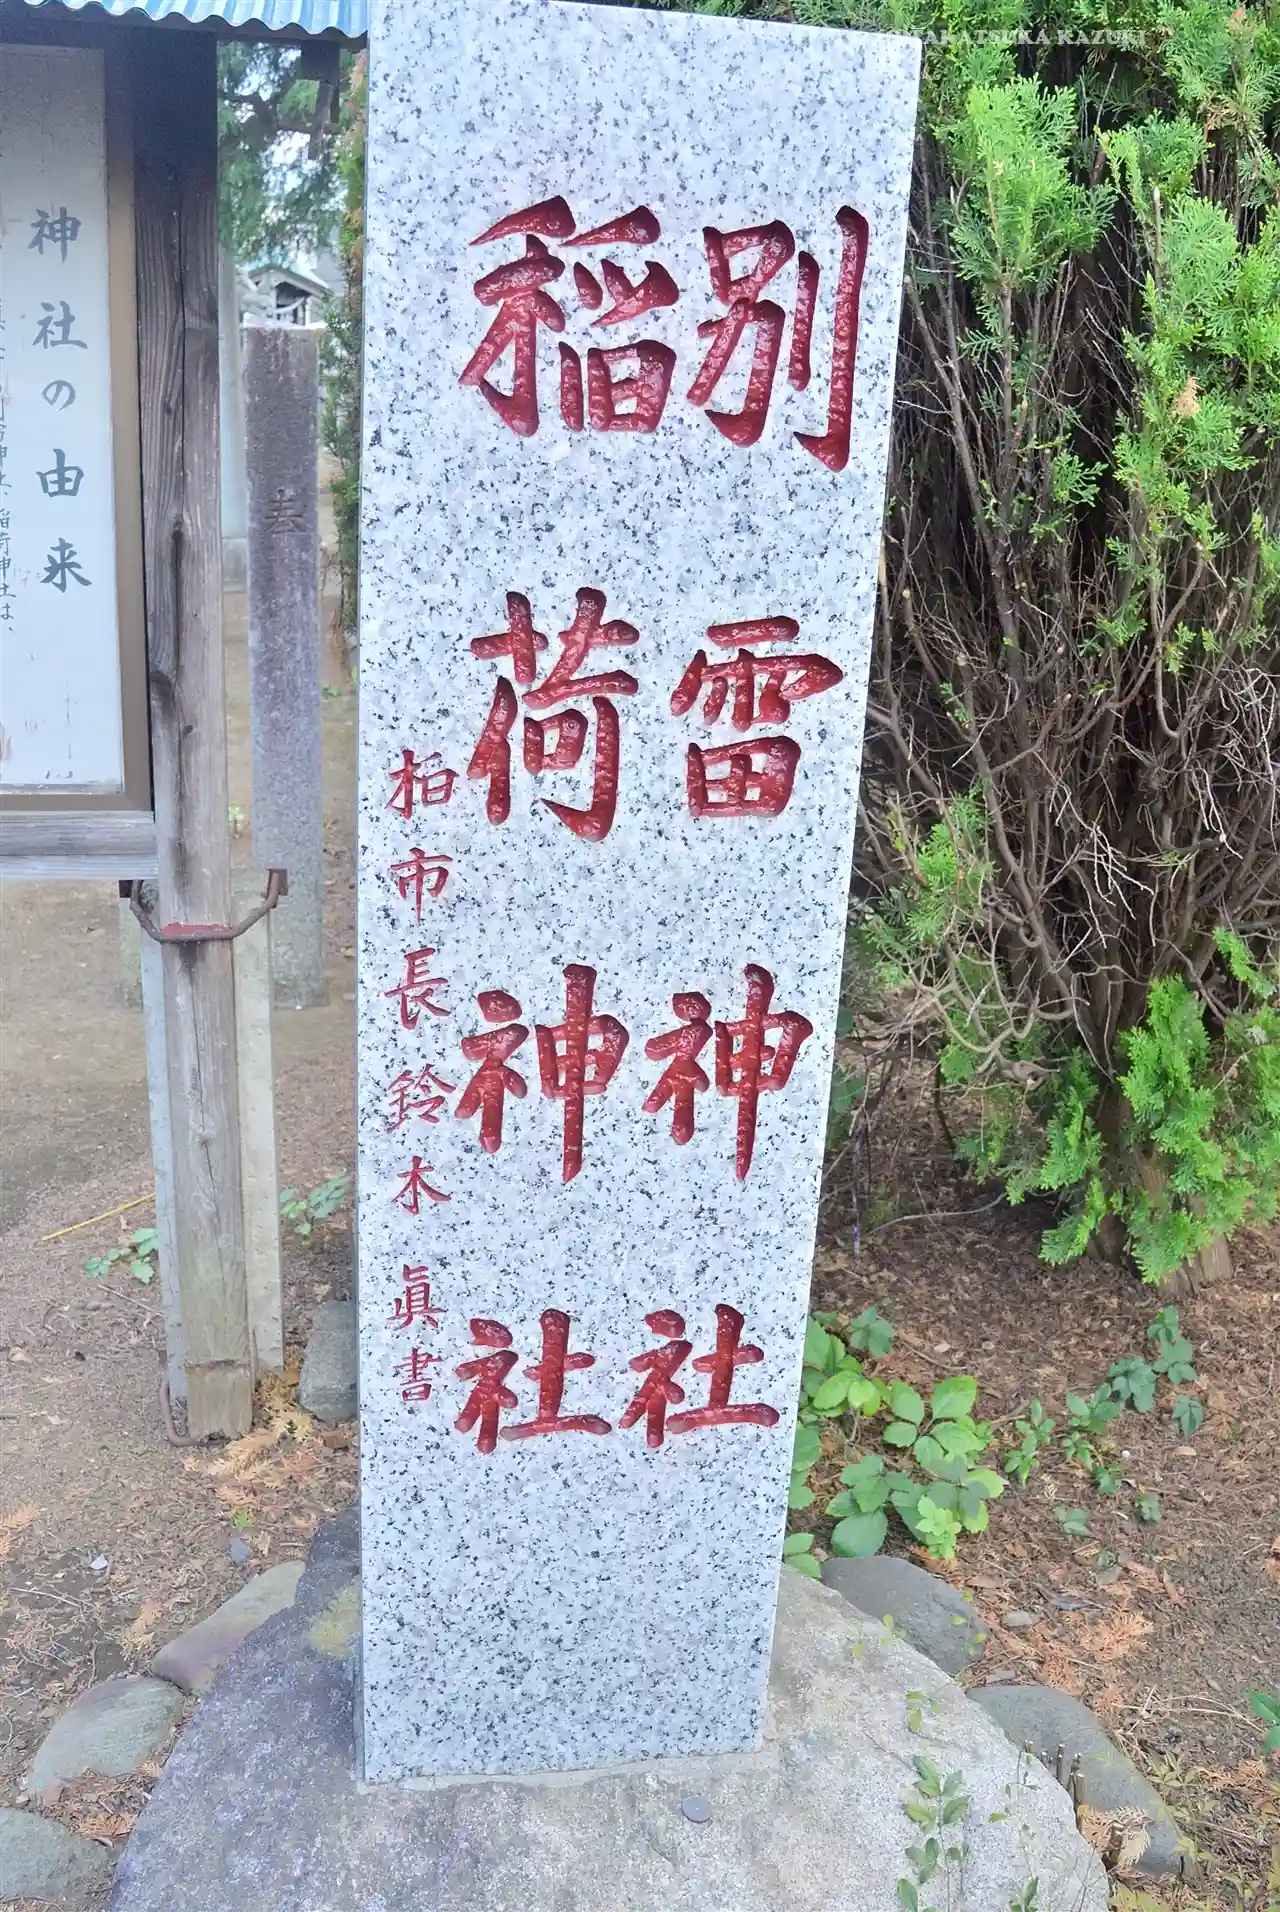 別雷神社
稲荷神社
柏市長鈴木眞書
神社の由来
稲荷神社は、
奉
TAKATSUKA KAZUKI